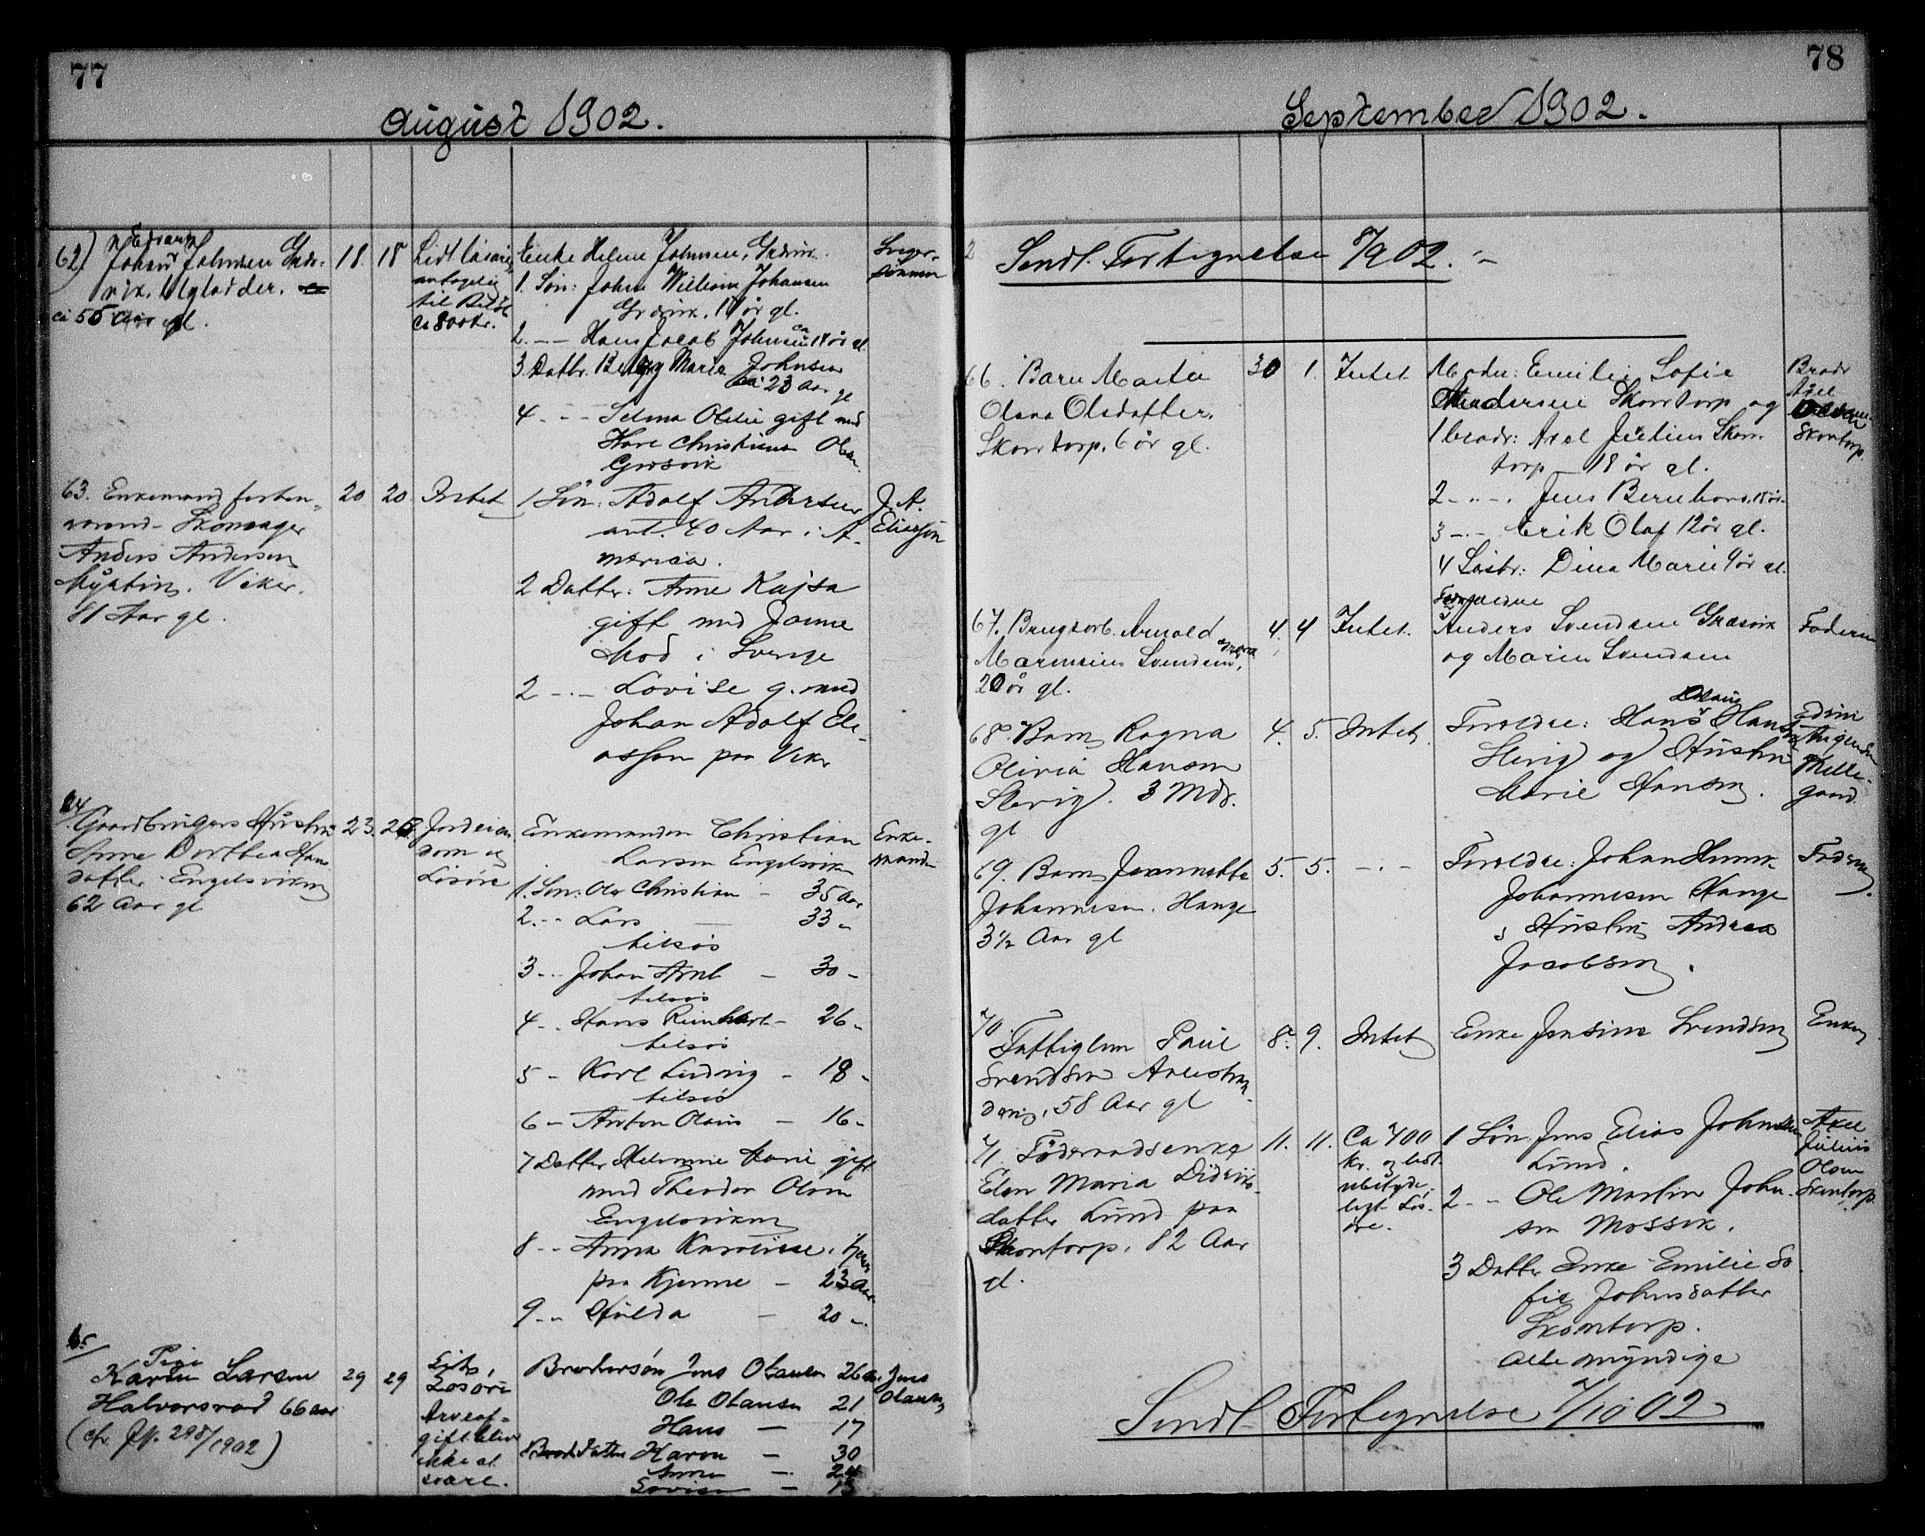 77
August 1902.
62)
Johan Johnsen Græs-
vik. Ugladder.
ca 55 Aar gl.
18.
18
Lidt Løsøre
antagelig
til Beløb
ca 800 kr.
Enke Helene Johnsen, Græsvik.
1. Søn: John William Johansen
Græsvik, 17 år gl.
2. - - Hans Jacob Johnsen ca 14 år gl.
3. Dattr. Marie Johnsen
ca 23 Aar gl
4. - - Selma Otilie gift med
Karl Christian Olsen
Græsvik
Sviger-
sønnen
63. Enkemand forhen-
værende Skomager
Anders Andersen
Viker.
81 Aar gl.
20
20
Intet
1 Søn: Adolf Andersen
ant. 40 Aar i A-
merica.
2 Datter: Anne Kajsa
gift med Janne
Mod i Sverige
2 - - Lovise g. med
Johan Adolf Eli-
asson paa Viker
J. A.
Eliasson
64
Gaardbrugers Hustru
Anne Dorthea Hans
datter Engelsviken
62 Aar gl
23.
25.
Jordeien
dom og
Løsøre
Enkemanden Christian
Larsen Engelsviken
1. Søn: Ole Christian - 35 Aar
2. - - Lars - 33 -
tilsøs
3 - - Johan Arnt - 30 -
tilsøs
4 - - Hans Reinhart - 26 -
tilsøs
5 - Karl Ludvig - 18 -
tilsøs
6 - Anton Olaus - 16 -
7 Datter Helmine Marie gift
med Theodor Olsen
Engelsviken
8 - - Anna Karoline, tjen
paa Kjenne - 23 Aar
9 - - Hulda - 20 -
Enke-
manden
65
Pige
Karen Larsen
Halvorsrød 66 aar
(cfr. Jf. 298/1902)
29
29
Lidt
Løsøre
Arveaf-
gift blir
ikke at
svare.
Brodersøn Jens Olausen 26 a.
Ole Olausen 21
Hans - 17
Brod.datter Karen - 30
Anna - 24
Lovise - 15
Jens
Olausen
78
September 1902.
Sendt Fortegnelse 8/9 02.
66. Barn Marta
Olena Olsdatter.
Skontorp. 6 år gl.
30
1.
Intet
Moder: Emilie Sofie
Skontorp og
1 brodr: Axel Julius Skon-
torp - 18 år gl.
2 - - Jens Bernhard. 15 år
3 - - Erik Olaf 12 år gl.
4 Søstr: Dina Marie 9 år gl.
Brodr
Axel
Skontorp
67. Brugsarb. Arnold
Marensius Svendsen, Græsvik
20 år gl.
4.
4
Intet.
Forældrene
Anders Svendsen Græsvik
og Maren Svendsen
Faderen
68. Barn Ragna
Olivia Hansen
Slevig. 3 Mdr.
gl
4.
5.
Intet
Forældre: Hans Olaus Hansen
Slevig og Hustru
Marie Hansen.
69. Barn Jeannette
Johannesen. Hauge
3 1/2 Aar gl
5.
5.
- . -
Forældre: Johan Henrik
Johannesen Hauge
og Hustru Andrea
Jacobsen.
Faderen.
70.
Fattiglem Paul
Svendsen
58 Aar gl
8.
9.
Intet
Enke Jensine Svendsen
Enken
71. Føderaadsenke
Elen Maria Didriks-
datter Lund paa
Skontorp. 82 Aar
gl.
11.
11.
Ca 400
kr. og lidt
ubetyde-
ligt Løs-
øre.
1 Søn Jens Elias Johnsen
Lund.
2 - - Ole Martin John-
sen Mossik.
3 Datter Enke Emilie So-
fie Johnsdatter
Skontorp.
alle myndige
Axel
Julius
Olsen
Skontorp
Sendt Fortegnelse 7/10 02